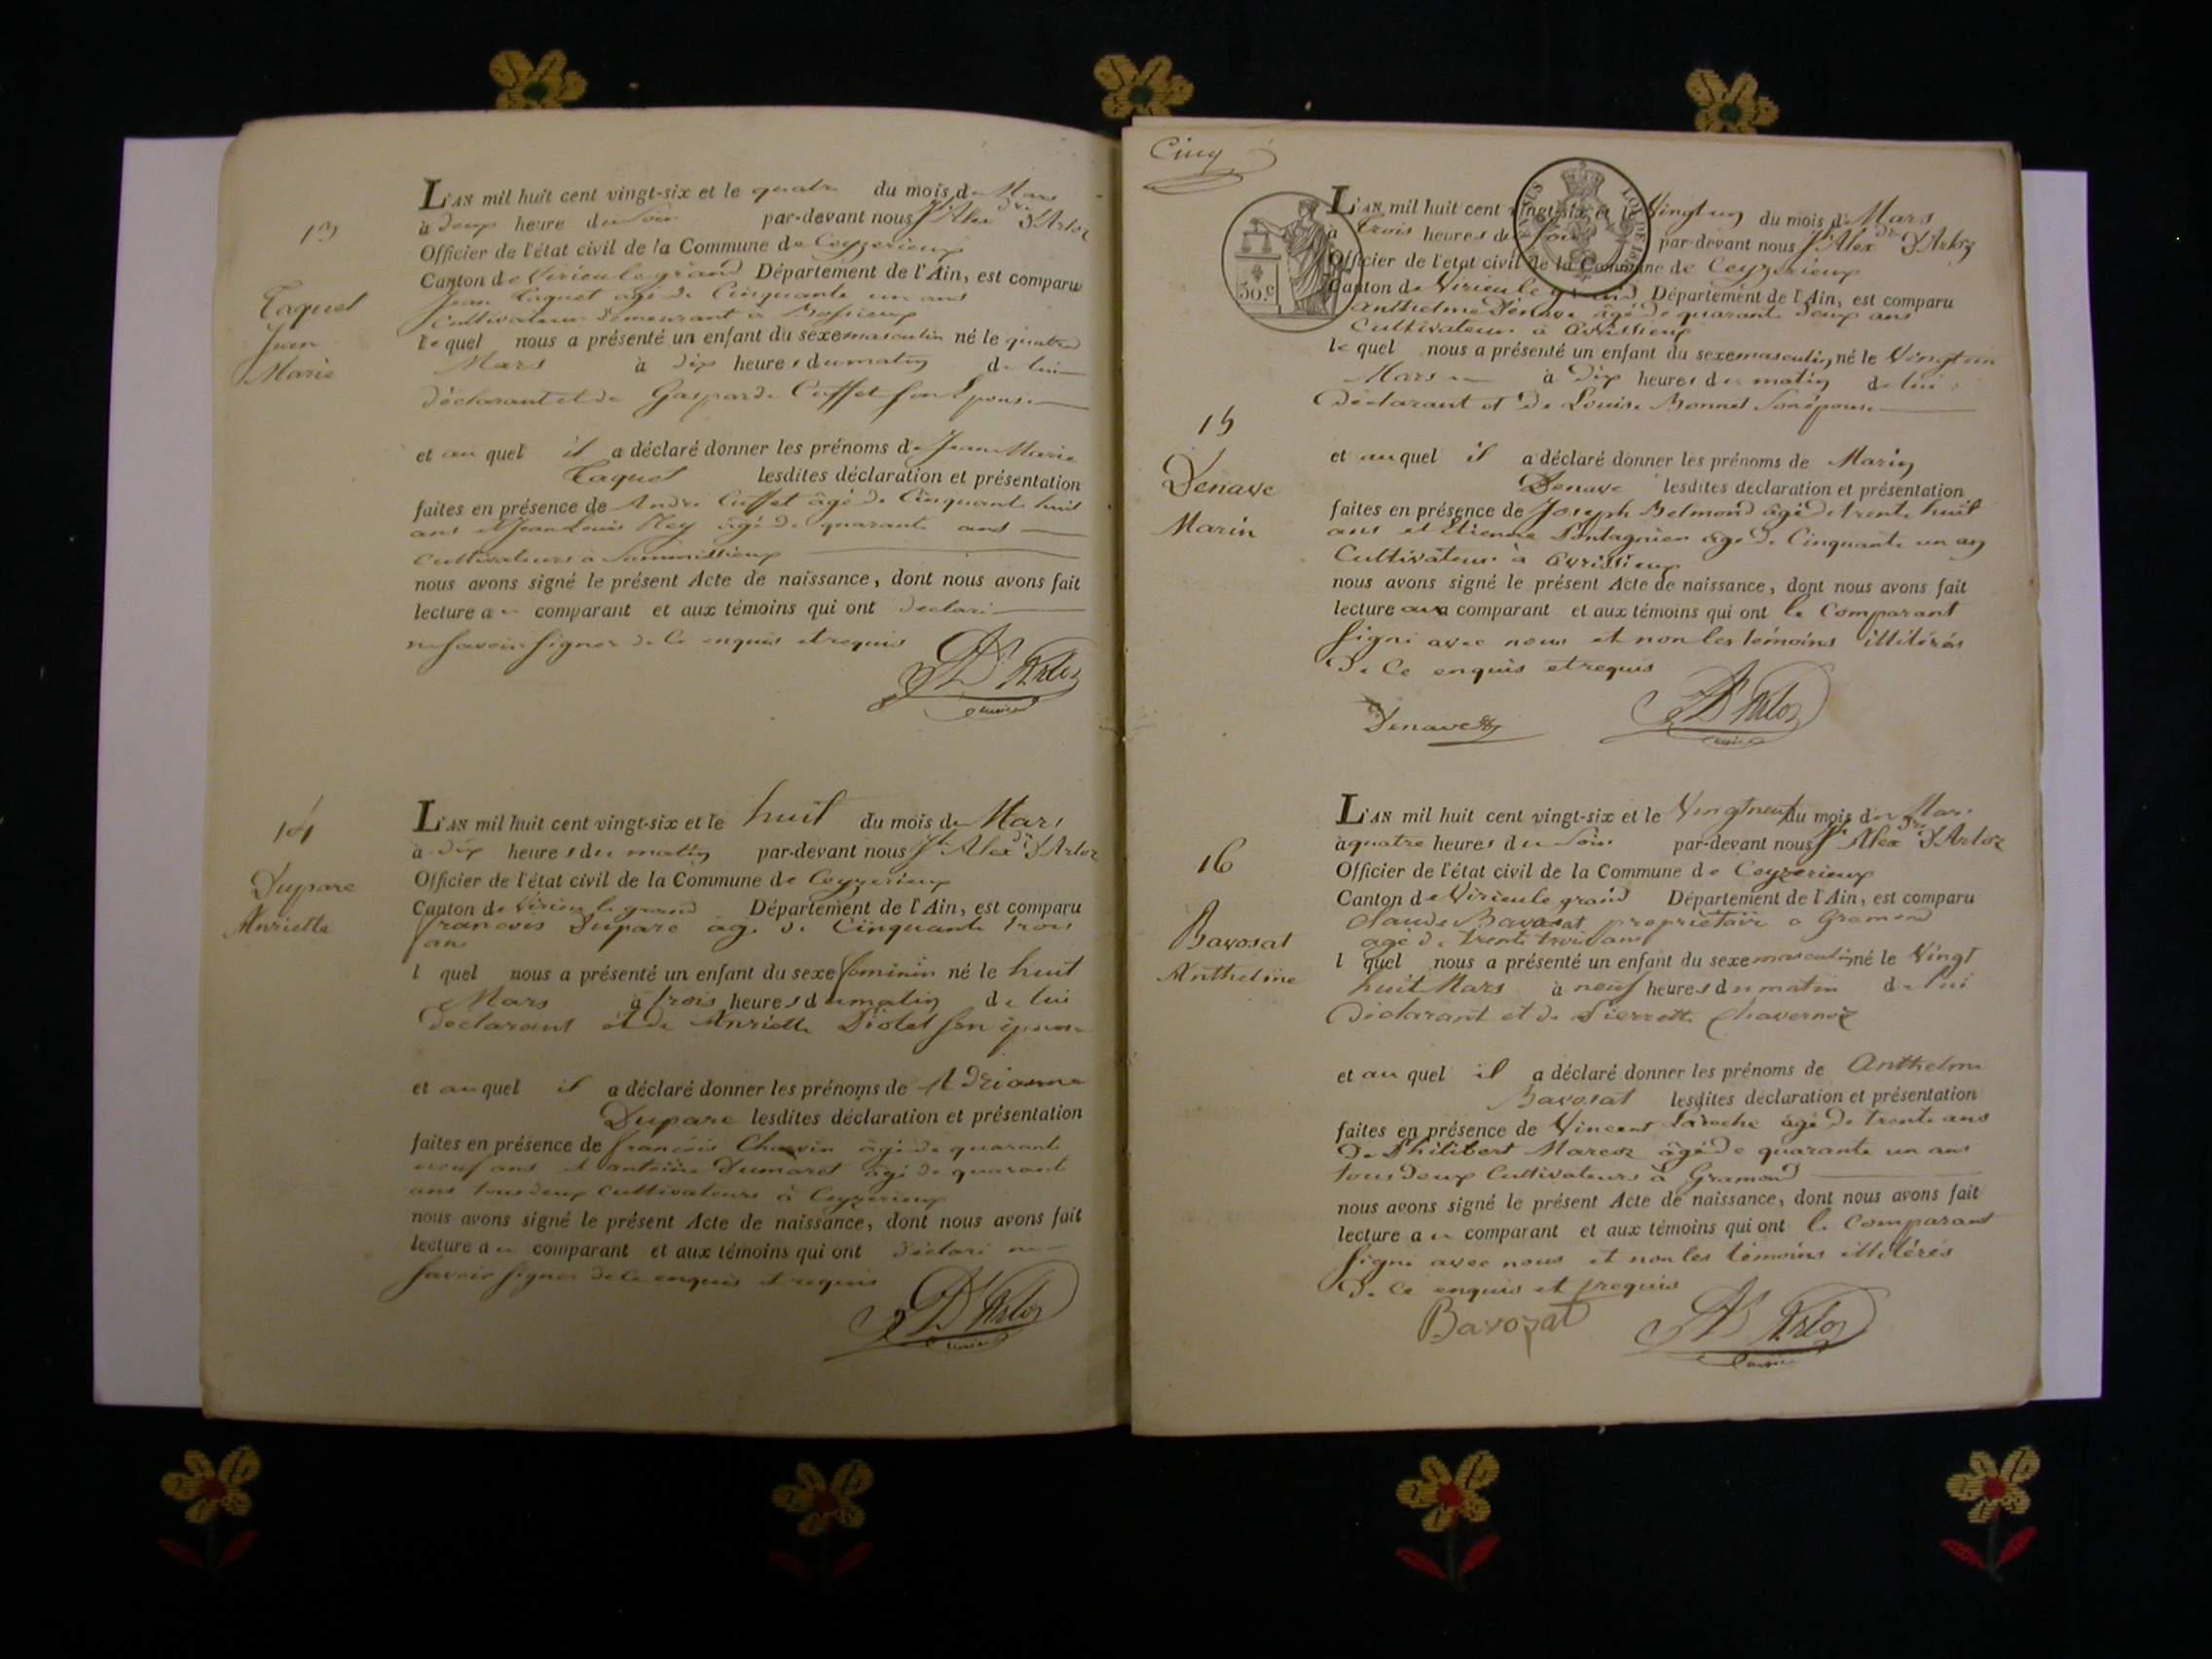 13
Taquet
Jean
Marie
L'AN mil huit cent vingt-six et le quatre du mois de Mars
à deux heure du soir par-devant nous Jh Alexdre D'Arloz
Officier de l'état civil de la Commune de Ceyzerieux
Canton de Virieu le grand Département de l'Ain, est comparu
Jean Taquet agé de Cinquante un ans
Cultivateur demeurant a
le quel nous a présenté un enfant du sexe masculin né le quatre
Mars à dix heures du matin de lui
déclarant et de Gasparde Cuffet son Epouse
et au quel il a déclaré donner les prénoms de Jean Marie
Taquet lesdites déclaration et présentation
faites en présence de André Cuffet âgé de Cinquante huit
ans et Jean Louis Rey âgé de quarante ans
cultivateurs à
nous avons signé le présent Acte de naissance, dont nous avons fait
lecture au comparant et aux témoins qui ont declaré
ne savoir signer de Ce enquis et requis
D'Arloz
14
Duparc
Anriette
L'AN mil huit cent vingt-six et le huit du mois de Mars
à dix heures du matin par-devant nous Jh Alexdre D'Arloz
Officier de l'état civil de la Commune de Ceyzerieux
Canton de Virieu le grand Département de l'Ain, est comparu
francois Duparc agé de Cinquante trois
ans
l quel nous a présenté un enfant du sexe feminin né le huit
Mars à trois heures du matin de lui
declarant et de Anriette Diotet son épouse
et au quel il a déclaré donner les prénoms de
Duparc lesdites déclaration et présentation
faites en présence de francois âgé de quarante
neuf ans et antoine Dumaret âgé de quarante
ans tous deux cultivateurs à Ceyzerieux
nous avons signé le présent Acte de naissance, dont nous avons fait
lecture au comparant et aux témoins qui ont déclaré ne
savoir signer de Ce enquis et requis
D'Arloz
Cinq
50.c
15
Denave
Marin
L'AN mil huit cent vingt-six et le Vingt un du mois de Mars
à trois heures du soir par-devant nous Jh Alexdre D'Arloz
Officier de l'état civil de la Commune de Ceyzerieux
Canton de Virieu le grand Département de l'Ain, est comparu
Anthelme Denave âgé de quarante deux ans
Cultivateur à Avrissieux
le quel nous a présenté un enfant du sexe masculin né le Vingt un
Mars à dix heures du matin de lui
Déclarant et de Louise Bonnet son épouse
et au quel il a déclaré donner les prénoms de Marin
Denave lesdites déclaration et présentation
faites en présence de Joseph Belmond âgé de trente huit
ans et Etienne Pontagnier âgé de Cinquante un an
Cultivateur à Avrissieux
nous avons signé le présent Acte de naissance, dont nous avons fait
lecture au comparant et aux témoins qui ont le Comparant
signé avec nous et non les témoins illitérés
De Ce enquis et requis
Denave
D'Arloz
16
Bavosat
Anthelme
L'AN mil huit cent vingt-six et le Vingt neuf du mois de Mars
à quatre heures du soir par-devant nous Jh Alexdre D'Arloz
Officier de l'état civil de la Commune de Ceyzerieux
Canton de Virieu le grand Département de l'Ain, est comparu
Claude Bavosat propriétaire a Gramond
agé de trente trois ans
l quel nous a présenté un enfant du sexe masculin né le Vingt
huit Mars à neuf heures du matin de lui
Déclarant et de Pierrette Chavernoz
et au quel il a déclaré donner les prénoms de Anthelme
Bavosat lesdites déclaration et présentation
faites en présence de Vincent Laroche âgé de trente ans
De Philibert Maresz âgé de quarante un ans
tous Deux Cultivateurs à Gramond
nous avons signé le présent Acte de naissance, dont nous avons fait
lecture au comparant et aux témoins qui ont le Comparant
signé avec nous et non les témoins illitérés
De Ce enquis et requis
Bavozat
D'Arloz